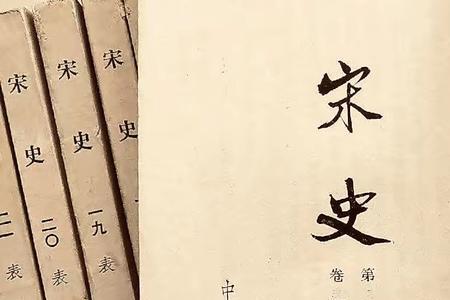 宋史
第
卷
中
宋史
一九
表
宋史
二〇
表
宋史
二一
表